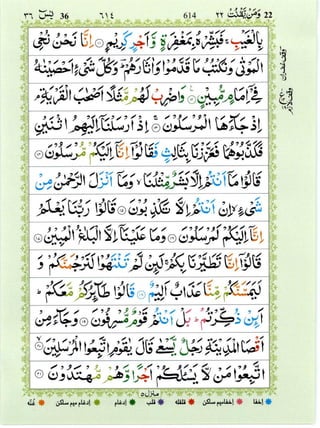 22 وَمَن يَّقْنُتْ ٢٢ 614 ٦١٤ 36 يٰسٓ ٣٦
بِالْغَيْبِ ۚ فَبَشِّرْهُ بِمَغْفِرَةٍ وَّاَجْرٍ كَرِيْمٍ ۝ اِنَّا نَحْنُ نُحْيِ
الْمَوْتٰى وَنَكْتُبُ مَا قَدَّمُوْا وَاٰثَارَهُمْ ؕ وَكُلَّ شَيْءٍ اَحْصَيْنٰهُ
فِيْٓ اِمَامٍ مُّبِيْنٍ ۝ وَاضْرِبْ لَهُمْ مَّثَلًا اَصْحٰبَ الْقَرْيَةِ ۘ
اِذْ جَآءَهَا الْمُرْسَلُوْنَ ۝ اِذْ اَرْسَلْنَآ اِلَيْهِمُ اثْنَيْنِ
فَكَذَّبُوْهُمَا فَعَزَّزْنَا بِثَالِثٍ فَقَالُوْٓا اِنَّآ اِلَيْكُمْ مُّرْسَلُوْنَ ۝
قَالُوْا مَآ اَنْتُمْ اِلَّا بَشَرٌ مِّثْلُنَا ۙ وَمَآ اَنْزَلَ الرَّحْمٰنُ مِنْ
شَيْءٍ ۙ اِنْ اَنْتُمْ اِلَّا تَكْذِبُوْنَ ۝ قَالُوْا رَبُّنَا يَعْلَمُ
اِنَّآ اِلَيْكُمْ لَمُرْسَلُوْنَ ۝ وَمَا عَلَيْنَآ اِلَّا الْبَلٰغُ الْمُبِيْنُ ۝
قَالُوْٓا اِنَّا تَطَيَّرْنَا بِكُمْ ۚ لَئِنْ لَّمْ تَنْتَهُوْا لَنَرْجُمَنَّكُمْ وَ
لَيَمَسَّنَّكُمْ مِّنَّا عَذَابٌ اَلِيْمٌ ۝ قَالُوْا طَآئِرُكُمْ مَّعَكُمْ ؕ
اَئِنْ ذُكِّرْتُمْ ؕ بَلْ اَنْتُمْ قَوْمٌ مُّسْرِفُوْنَ ۝ وَجَآءَ مِنْ
اَقْصَا الْمَدِيْنَةِ رَجُلٌ يَّسْعٰى قَالَ يٰقَوْمِ اتَّبِعُوا الْمُرْسَلِيْنَ ۝
اتَّبِعُوْا مَنْ لَّا يَسْـَٔلُكُمْ اَجْرًا وَّهُمْ مُّهْتَدُوْنَ ۝
منزل ٥
اخفا اخفاميم ساكن قلقله قلب ادغام ادغام ميم ساكن غنّه